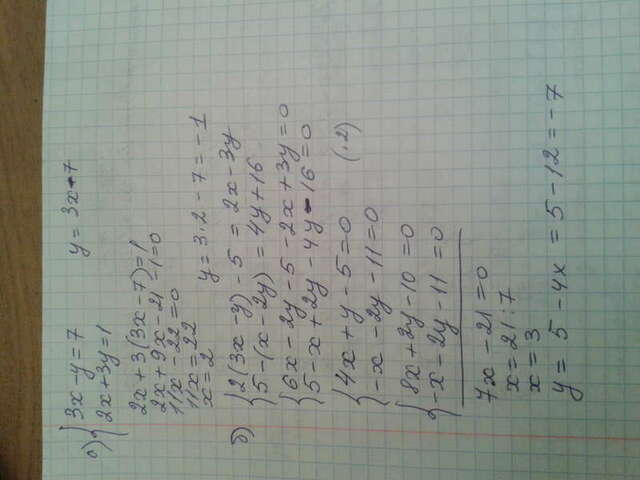 а) { 3x - y = 7     y = 3x - 7
{ 2x + 3y = 1
2x + 3(3x - 7) = 1
2x + 9x - 21 - 1 = 0
11x - 22 = 0
11x = 22
x = 2     y = 3·2 - 7 = -1
б) { 2(3x - y) - 5 = 2x - 3y
{ 5 - (x - 2y) = 4y + 16
{ 6x - 2y - 5 - 2x + 3y = 0
{ 5 - x + 2y - 4y - 16 = 0
{ 4x + y - 5 = 0     (·2)
{ -x - 2y - 11 = 0
{ 8x + 2y - 10 = 0
{ -x - 2y - 11 = 0
7x - 21 = 0
x = 21 : 7
x = 3
y = 5 - 4x = 5 - 12 = -7